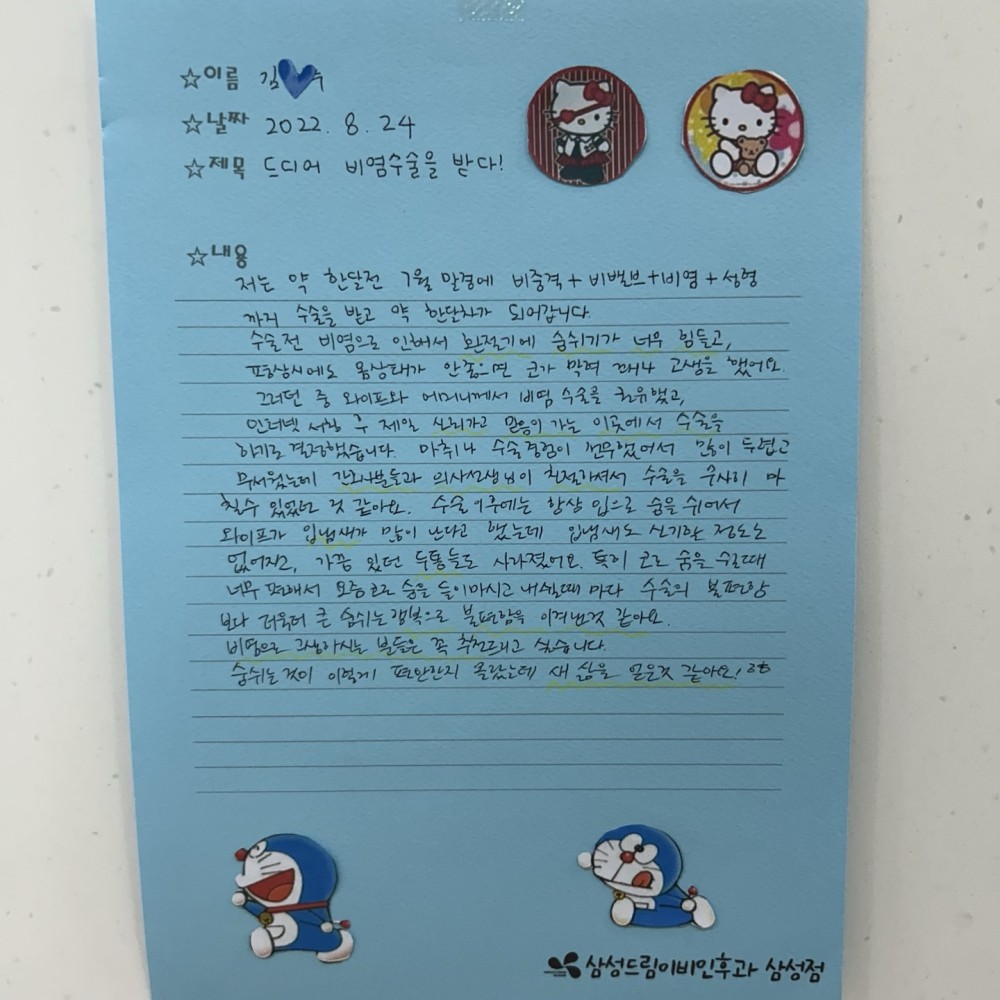 ☆이름 김 수
☆날짜 2022. 8. 24
☆제목 드디어 비염수술을 받다!
☆내용
저는 약 한달전 7월 말경에 비중격+비밸브+비염+성형
까지 수술을 받고 약 한달차가 되어갑니다.
수술전 비염으로 인해서 환절기에 숨쉬기가 너무 힘들고,
평상시에도 몸상태가 안좋으면 코가 막혀 꽤나 고생을 했어요.
그러던 중 와이프와 어머니께서 비염 수술을 권유했고,
인터넷 서칭 후 제일 신뢰가고 믿음이 가는 이곳에서 수술을
하기로 결정했습니다. 마취나 수술경험이 전무했어서 많이 두렵고
무서웠는데 간호사분들과 의사선생님이 친절하셔서 수술을 무사히 마
칠수 있었던 것 같아요. 수술이후에는 항상 입으로 숨을 쉬어서
와이프가 입냄새가 많이 난다고 했는데 입냄새도 신기할 정도로
없어지고, 가끔 있던 두통들도 사라졌어요. 특히 코로 숨을 쉬는데
너무 편해서 요즘 코로 숨을 들이마시고 내쉴때 마다 수술의 불편함
보다 더욱더 큰 숨쉬는 행복으로 불편함을 이겨낸것 같아요.
비염으로 고생하시는 분들은 꼭 추천드리고 싶습니다.
숨쉬는 것이 이렇게 편안한지 몰랐는데 새 삶을 얻은것 같아요!
삼성드림이비인후과 삼성점